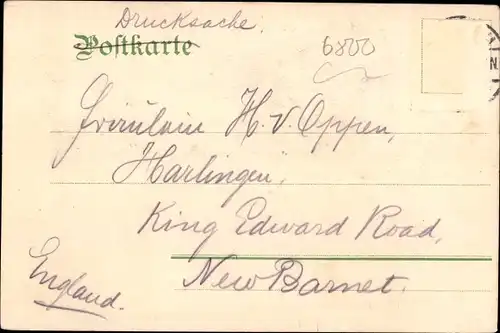 Drucksache.
Postkarte
6800
Fräulein H. v. Oppen,
"Harlingen",
King Edward Road,
New Barnet.
England.
N.